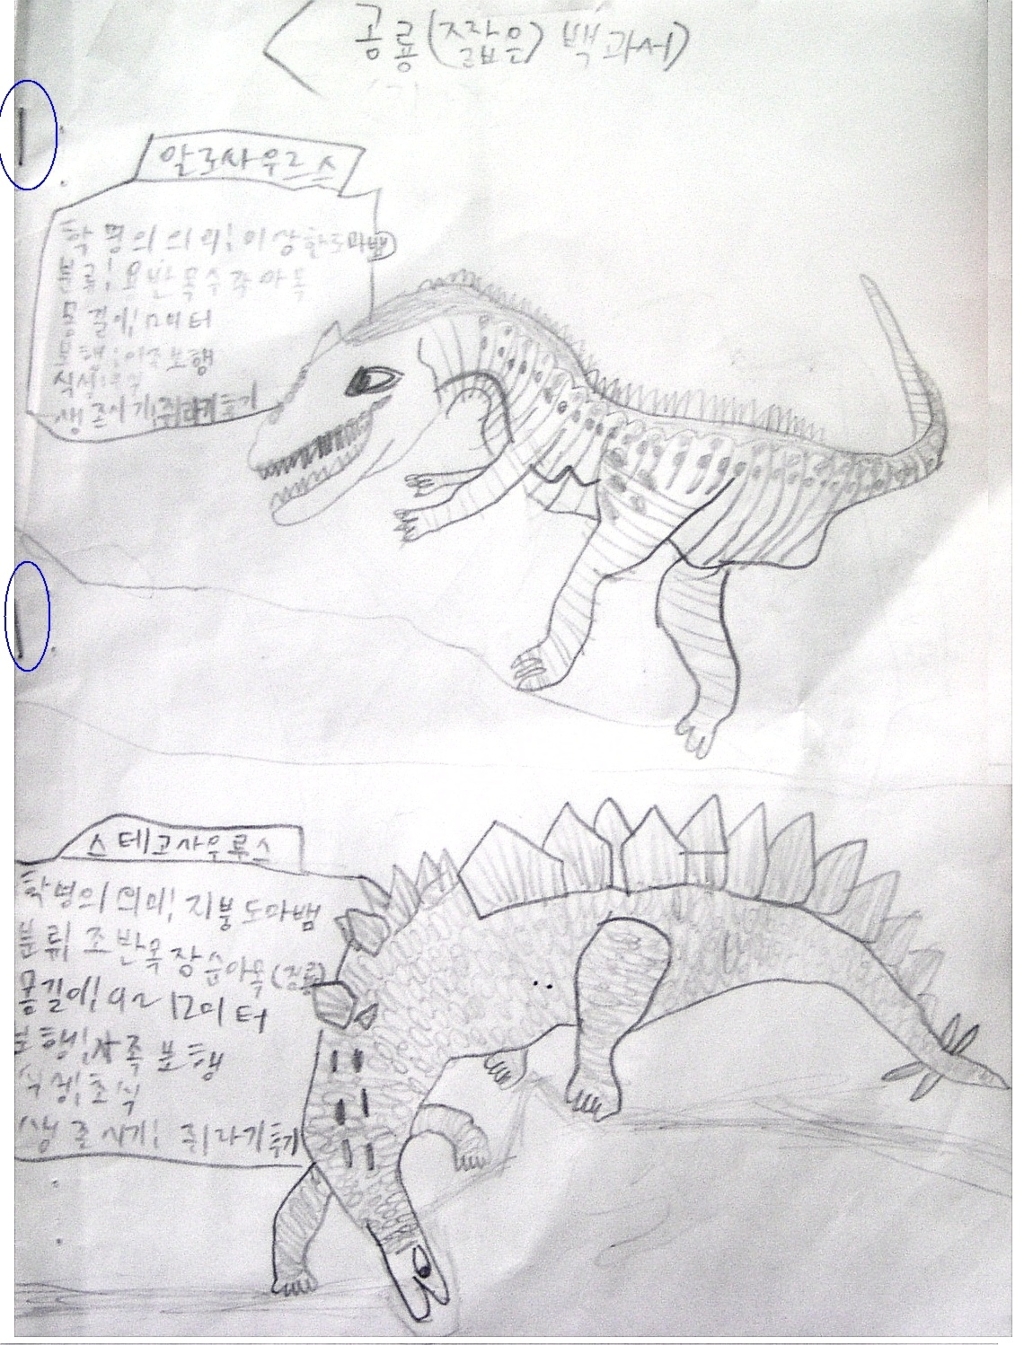 공룡(짧은) 백과서
알로사우르스
학명의 의의; 이상한도마뱀
분류; 용반목수각아목
몸길이; 12미터
보행; 이족보행
식성; 육식
생존시기; 쥐라기후기
스테고사우루스
학명의 의의; 지붕도마뱀
분류 조반목 장순아목(검룡)
몸길이; 9~12미터
보행; 사족보행
식성; 초식
생존시기; 쥐라기후기